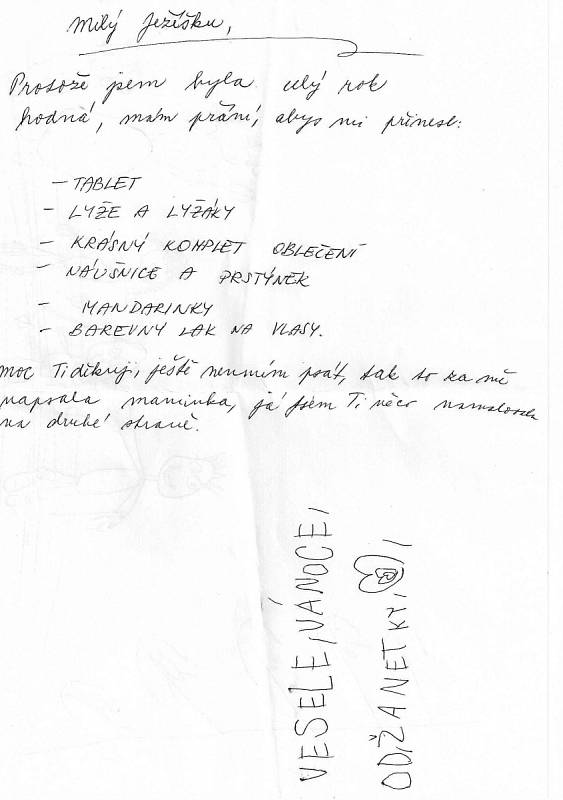 Milý Ježíšku,
Protože jsem byla celý rok
hodná, mám přání, abys mi přinesl:
- TABLET
- LYŽE A LYŽÁKY
- KRÁSNÝ KOMPLET OBLEČENÍ
- NÁUŠNICE A PRSTÝNEK
- MANDARINKY
- BAREVNÝ LAK NA VLASY.
moc Ti děkuji, ještě neumím psát, tak to za mě
napsala maminka, já jsem Ti něco namalovala
na druhé straně.
VESELÉ, VÁNOCE,
OD, ŽANETKY,